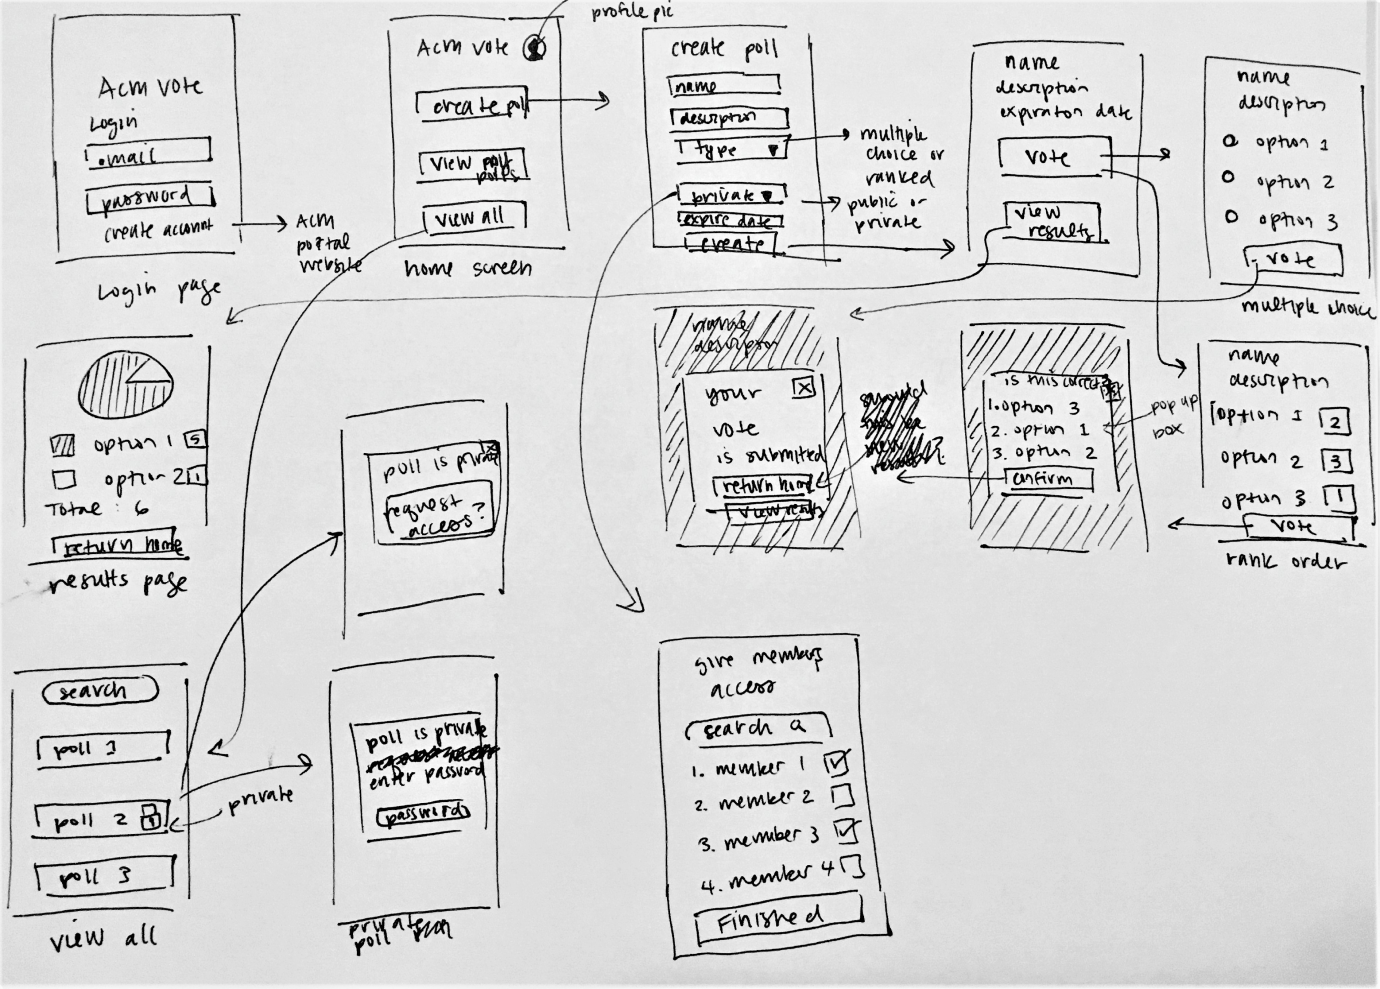 Acm vote
Login
email
password
create account
Acm
portal
website
Login page
profile pic
Acm vote
create poll
view poll
polls
view all
home screen
create poll
name
description
type
private
expire date
create
multiple
choice or
ranked
public or
private
name
description
expiration date
vote
view
results
name
description
option 1
option 2
option 3
vote
multiple choice
option 1 5
option 2 1
Total : 6
return home
results page
poll is private
x
request
access?
name
description
your
x
vote
is submitted
return home
view results
should
is this correct?
1. option 3
2. option 1
3. option 2
confirm
pop up
box
name
description
option 1 2
option 2 3
option 3 1
vote
rank order
search
poll 1
poll 2
poll 3
private
view all
poll is private
enter password
password
private
poll
give members
access
search
1. member 1
2. member 2
3. member 3
4. member 4
Finished